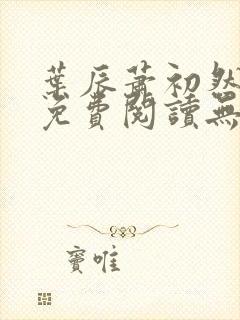 葉辰蕭初然
免費閱讀無
竇唯